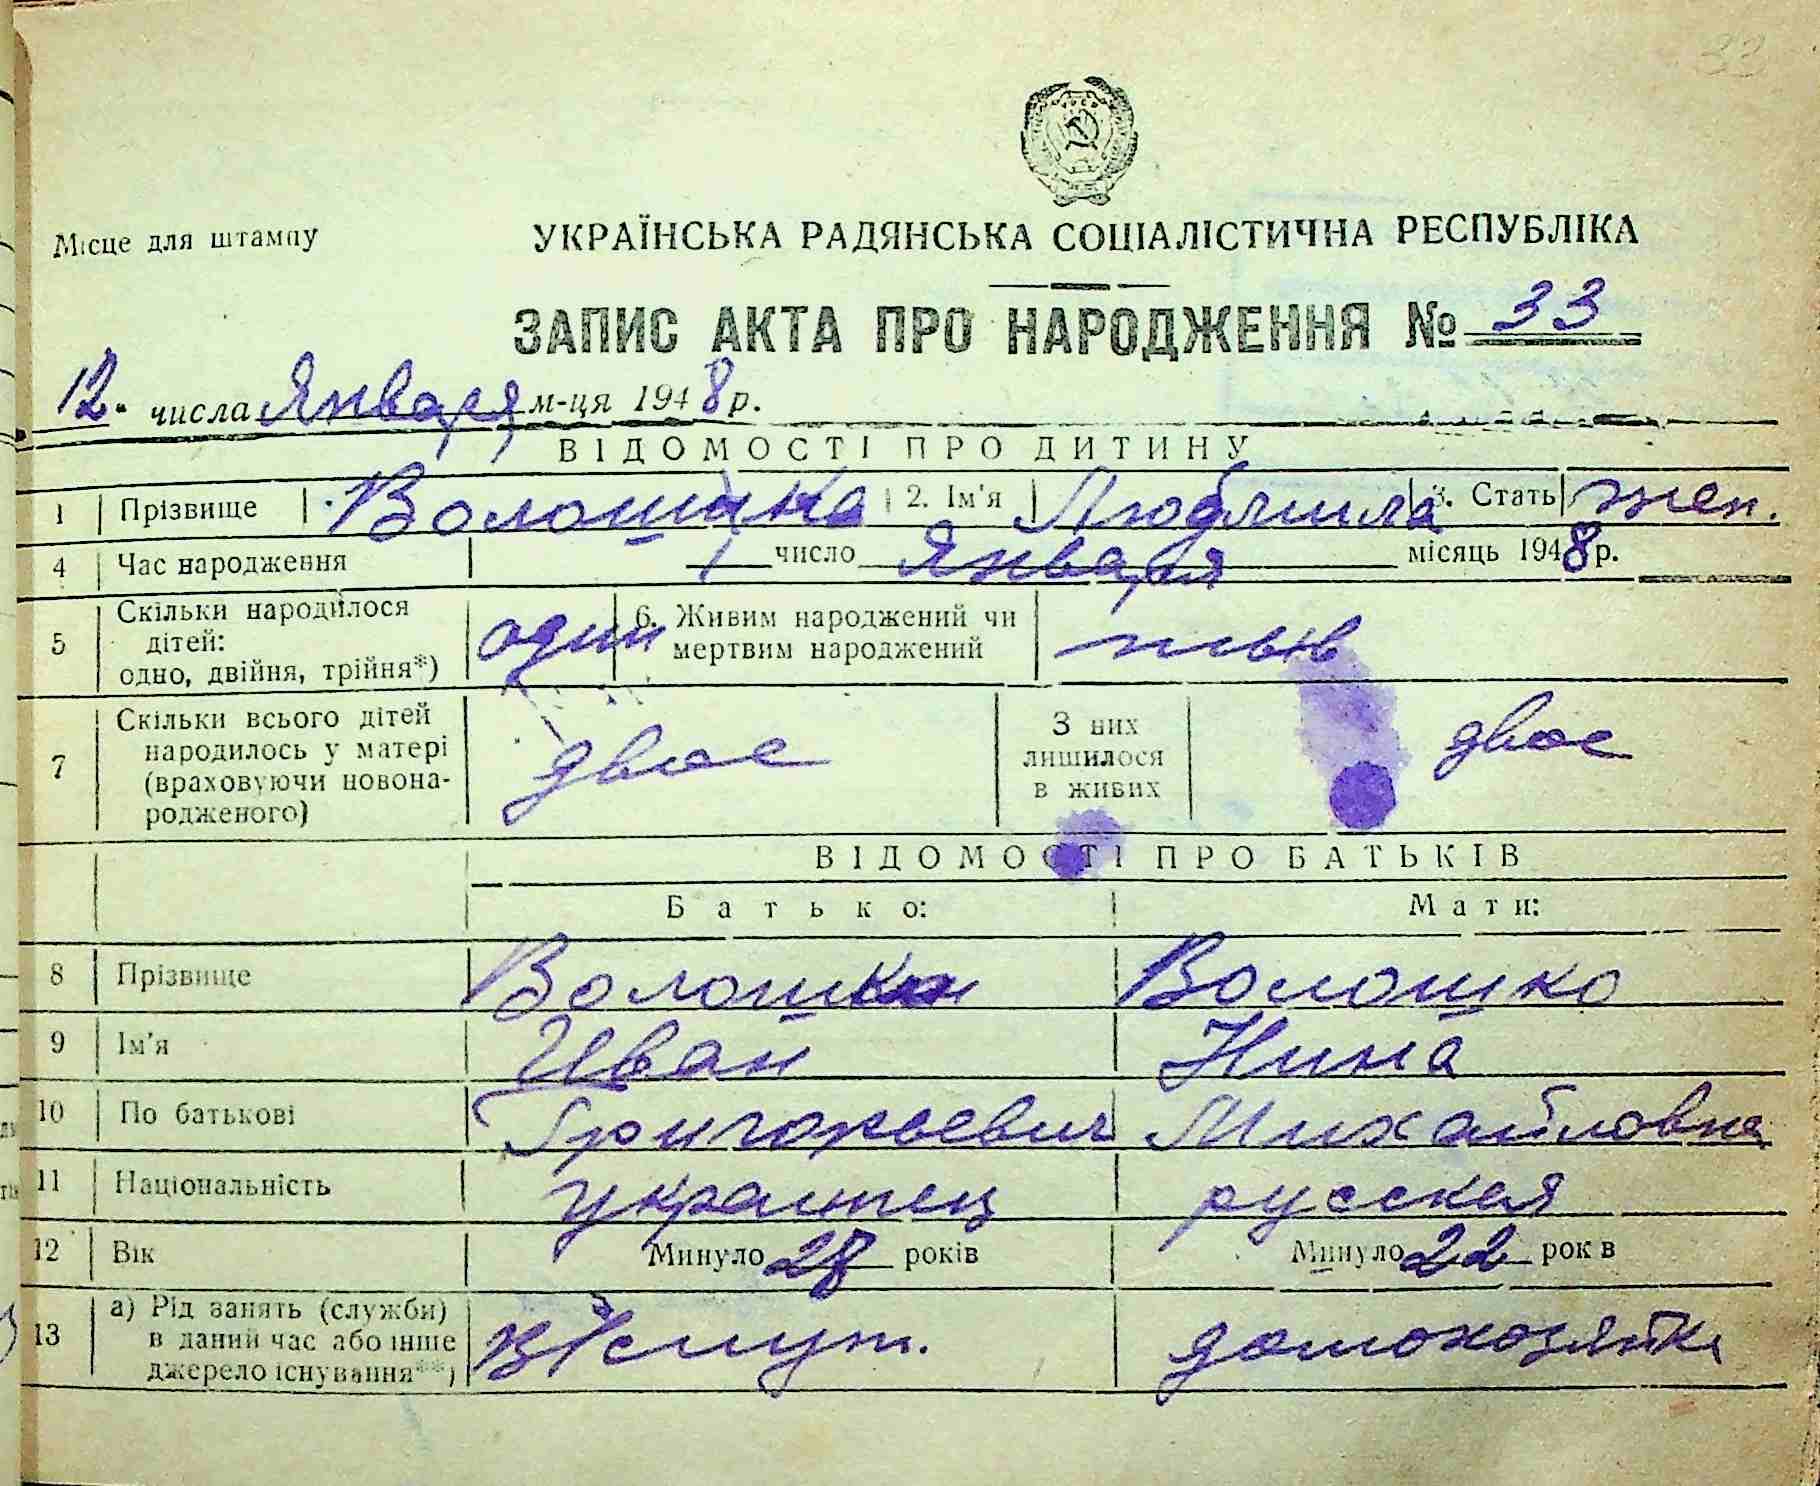 33
Місце для штампу
УКРАЇНСЬКА РАДЯНСЬКА СОЦІАЛІСТИЧНА РЕСПУБЛІКА
ЗАПИС АКТА ПРО НАРОДЖЕННЯ № 33
12. числа Января м-ця 1948 р.
ВІДОМОСТІ ПРО ДИТИНУ
1 Прізвище 2. Ім'я Людмила 3. Стать жен.
4 Час народження 1 число Января місяць 1948 р.
5 Скільки народилося дітей: одно, двійня, трійня*) один 6. Живим народжений чи мертвим народжений
7 Скільки всього дітей народилось у матері (враховуючи новонародженого) двое З них лишилося в живих двое
ВІДОМОСТІ ПРО БАТЬКІВ
Батько: Мати:
8 Прізвище Волошко
9 Ім'я Иван Нина
10 По батькові Григорьевич Михайловна
11 Національність украинец русская
12 Вік Минуло 28 років Минуло 22 років
13 а) Рід занять (служби) в даний час або інше джерело існування**) домохозяйка